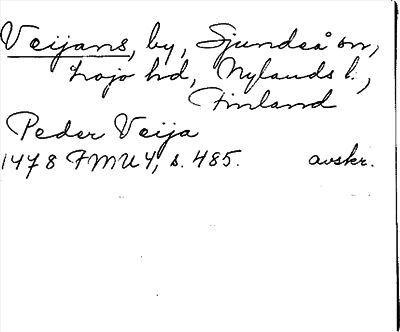 Veijans, by, Sjundeå sn,
Lojo hd, Nylands l.,
Finland
Peder Veija
1478 FMU 4, s. 485. avskr.